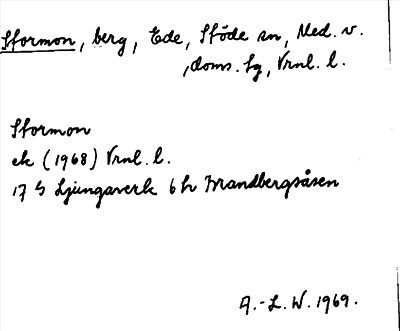 Stormon, berg, Ede, Stöde sn, Med. v.
, doms. hg, Vrnl. l.
Stormon
ek (1968) Vrnl. l.
17 S Ljungaverk 6 h Brandbergsåsen
A.-L. W. 1969.